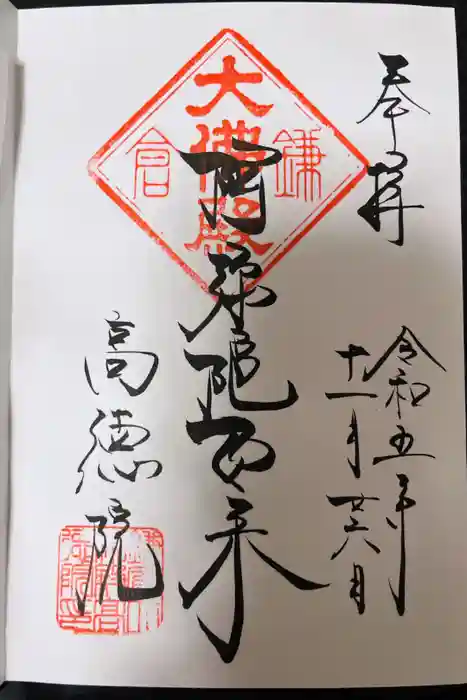 奉拝
令和五年
十一月廿六日
大佛殿
鎌倉
阿弥陀如来
高徳院